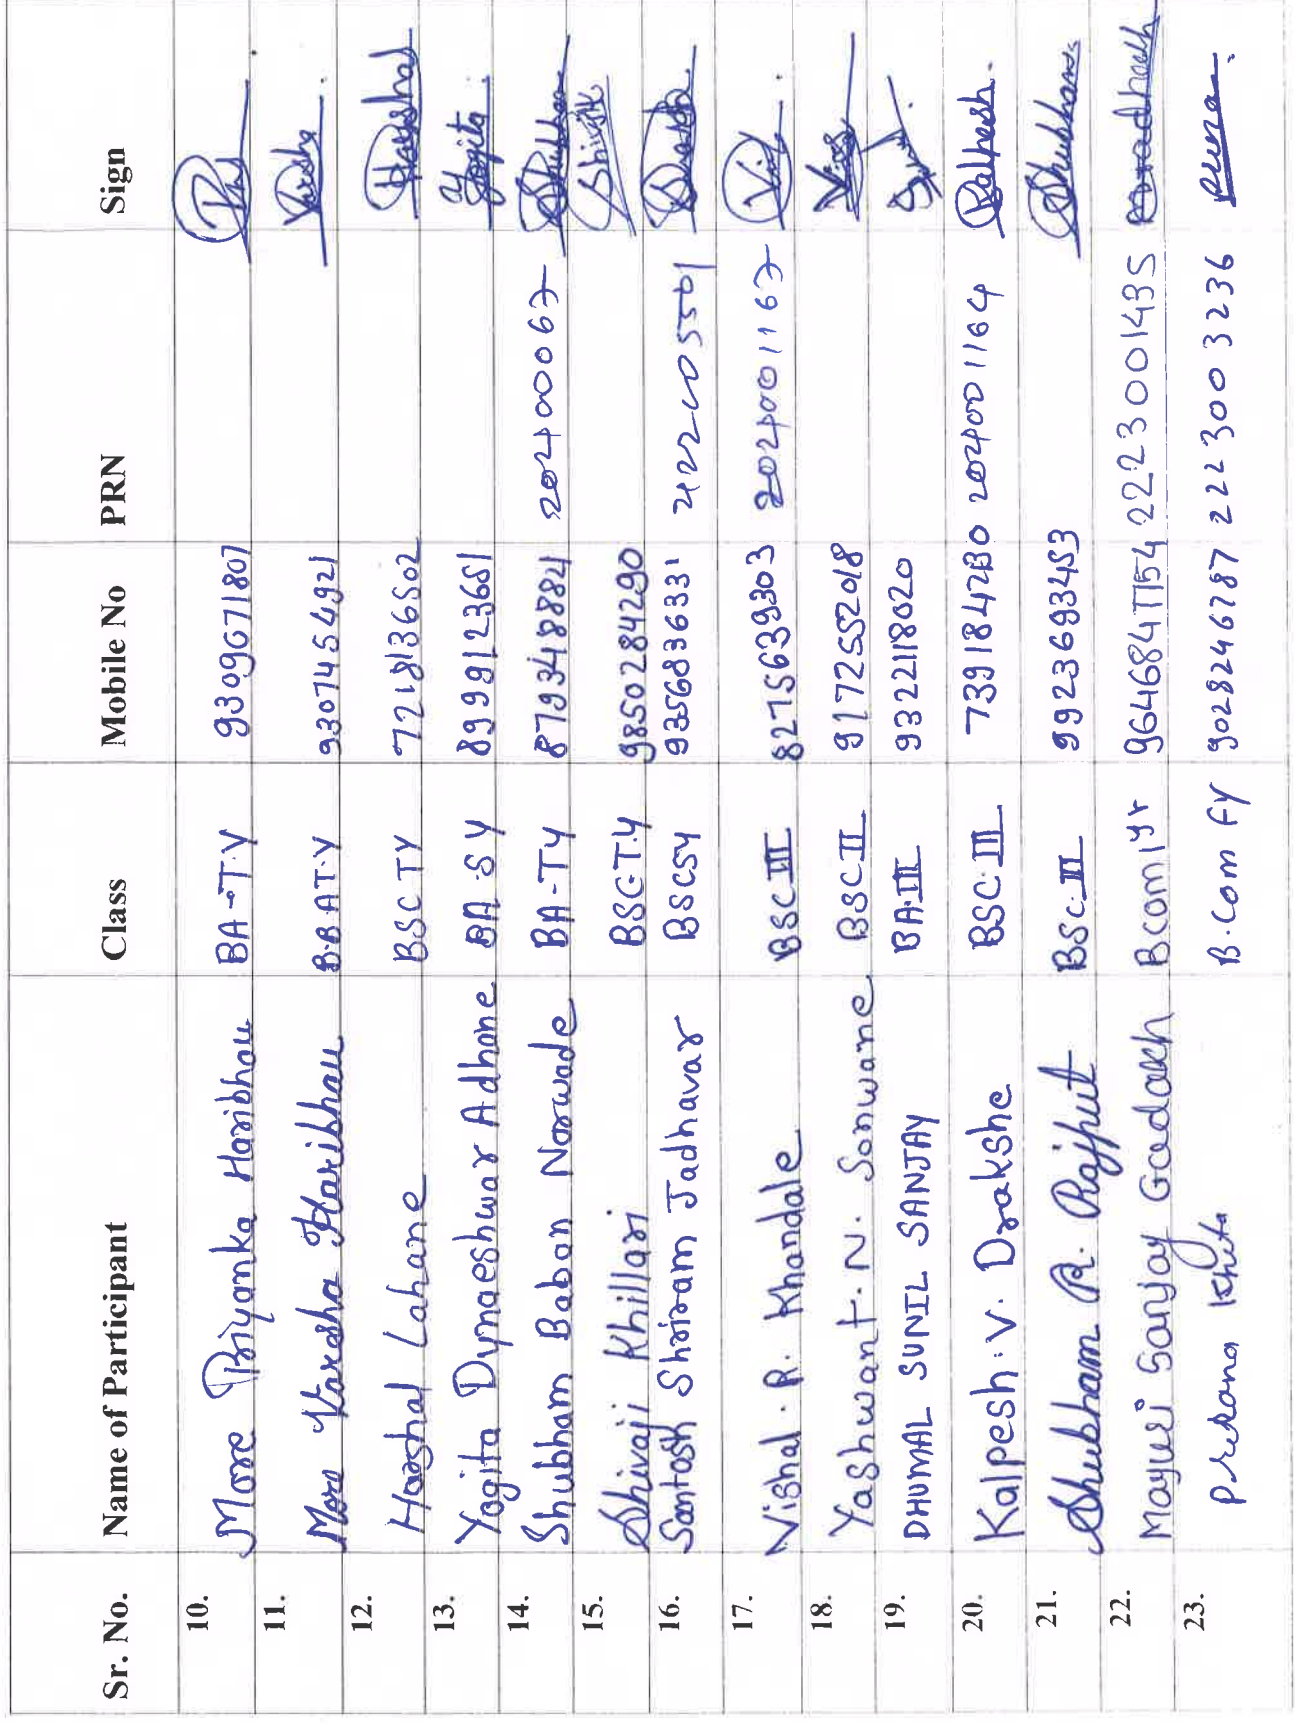 Sr. No. Name of Participant Class Mobile No PRN Sign
10. More Priyanka Haribhau BA-T.Y 9309671807
11. More Varsha Haribhau B.B.A T.Y 9307454921 Varsha
12. Harshal Lahane BSC TY 7218136502 Harshal
13. Yogita Dynaeshwar Adhane BA-SY 8999123651 Yogita
14. Shubham Baban Narwade BA-TY 8793488821 202400067 Shubham
15. Shivaji Khillari BSC-T.Y 9850284290 Shivaji
16. Santosh Shriram Jadhavar BSCSY 9356836331
17. Vishal . R. Khandale BSC III 8275639303 2024001167
18. Yashwant. N. Sonwane BSC II 9172552018
19. DHUMAL SUNIL SANJAY BA.III 9322118020
20. Kalpesh. V. Drakshe BSC. III 7391842130 2024001164 Kalpesh.
21. Shubham R. Rajput BSc. III 9923693453 Shubham
22. Mayuri Sanjay Gadakh Bcom 1 yr 2223001435
23. Prerana B.Com FY 9028246787 2223003236